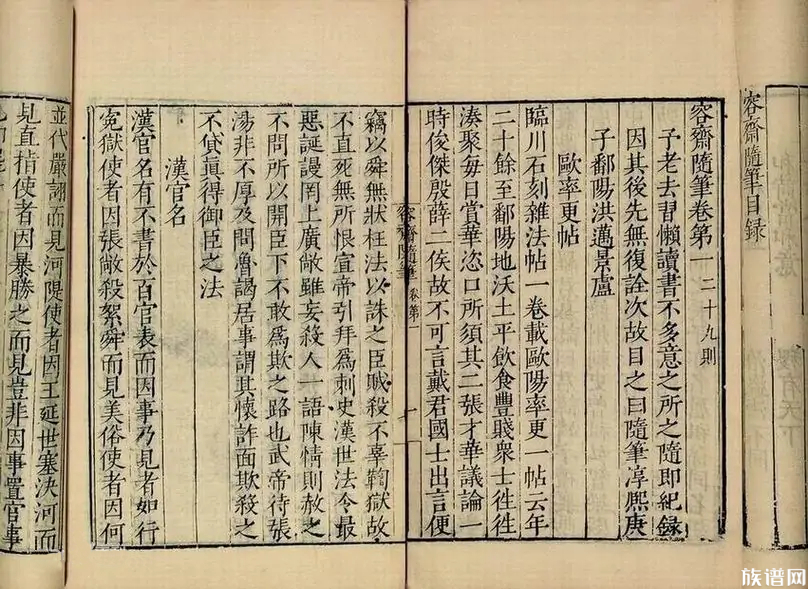 容齋隨筆目録
容齋隨筆卷第一二十九則
予老去習懶讀書不多意之所之隨即紀録
因其後先無復詮次故目之曰隨筆淳熙庚
子鄱陽洪邁景盧
歐率更帖
臨川石刻雜法帖一卷載歐陽率更一帖云年
二十餘至鄱陽地沃土平飲食豐賤衆士往往
湊聚毎日賞華恣口所須其二張才華議論一
時俊傑殷薛二侯故不可言戴君國士出言便
容齋隨筆 卷第一 一
竊以舜無狀枉法以誅之臣敞殺不辜鞫獄故
不直死無所恨宣帝引拜爲刺史漢世法令最
惡誕謾罔上廣敞雖妄殺人一語陳情則赦之
不問所以開臣下不敢爲欺之路也武帝待張
湯非不厚及問魯謁居事謂其懷詐面欺殺之
不貸真得御臣之法
漢官名
漢官名有不書於百官表而因事乃見者如行
寃獄使者因張敞殺絮舜而見美俗使者因何
並代嚴詡而見河隄使者因王延世塞決河而
見直指使者因暴勝之而見豈非因事置官事
族谱网